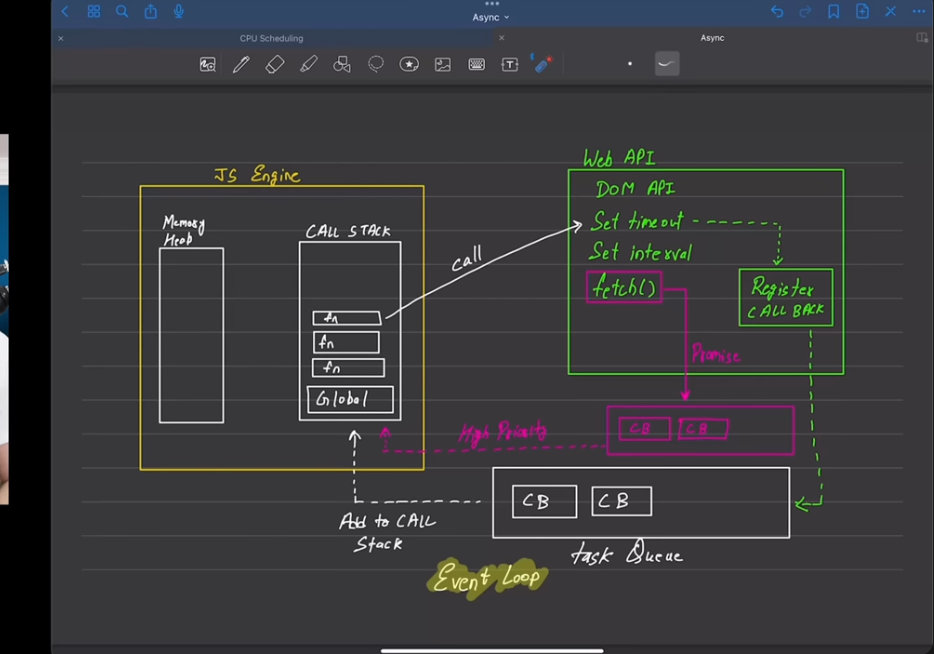 Async
CPU Scheduling
Async
JS Engine
Memory
Heab
CALL STACK
fn
fn
fn
Global
call
Web API
DOM API
Set timeout
Set interval
fetch()
Register
CALL BACK
Promise
High Priority
CB CB
CB CB
Add to CALL
Stack
task Queue
Event Loop